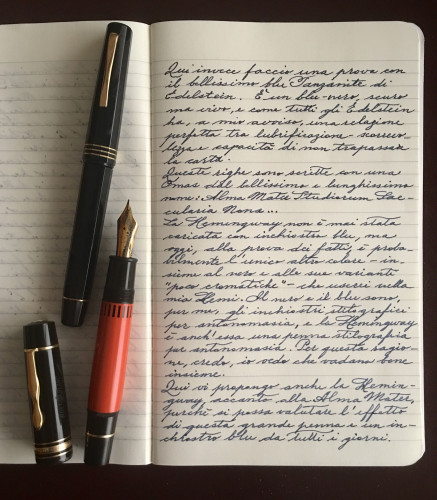 Qui invece faccio una prova con
il bellissimo blu Tanzanite di
Edelstein. È un blu-nero, scuro
ma vivo, e come tutti gli Edelstein
ha, a mio avviso, una relazione
perfetta tra lubrificazione - scorrevo-
lezza e capacità di non trapassare
la carta.
Queste righe sono scritte con una
Omas dal bellissimo e lunghissimo
nome: Alma Mater Studiorum Sae-
cularia Nona...
La Hemingway non è mai stata
caricata con inchiostro blu, ma
oggi, alla prova dei fatti, è proba-
bilmente l'unico altro colore - in-
sieme al nero e alle sue varianti
"poco cromatiche" - che userei nella
mia Hemi. Il nero e il blu sono,
per me, gli inchiostri stilografici
per antonomasia, e la Hemingway
è anch'essa una penna stilografica
per antonomasia. Per questa ragio-
ne, credo, io vedo che vadano bene
insieme.
Qui vi propongo anche la Hemin-
gway, accanto alla Alma Mater,
perché si possa valutare l'effetto
di questa grande penna e un in-
chiostro blu da tutti i giorni.